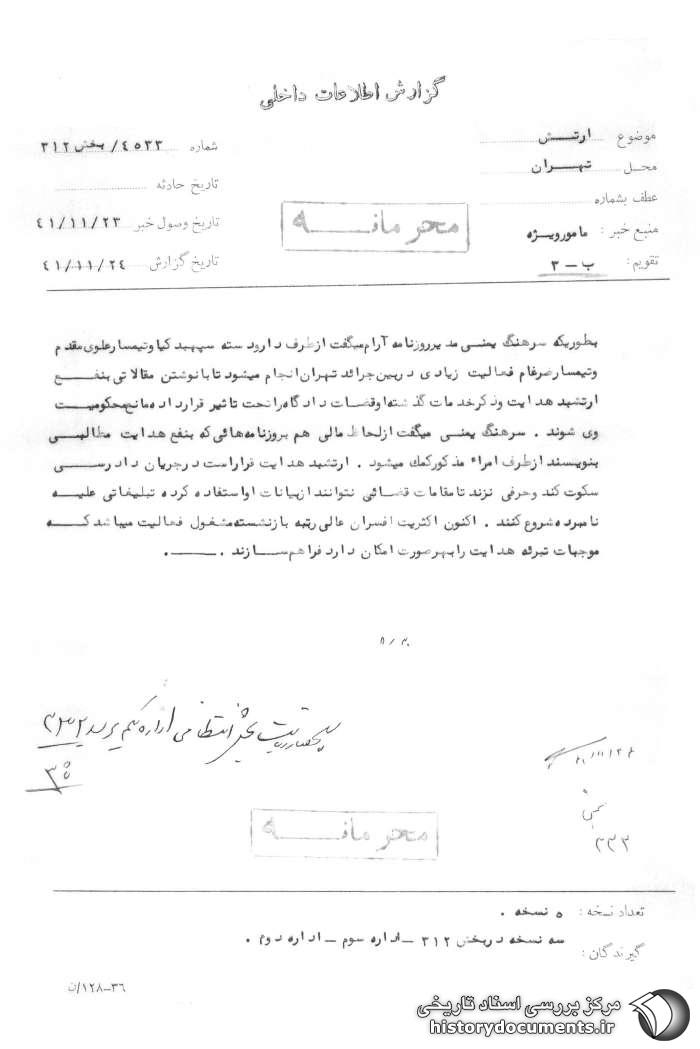 گزارش اطلاعات داخلی
موضوع ارتش
شماره ۴۵۳۳/ بخش ۳۱۲
محل تهران
تاریخ حادثه
عطف بشماره
محرمانه
تاریخ وصول خبر ۴۱/۱۱/۲۳
منبع خبر : مامورویژه
تاریخ گزارش ۴۱/۱۱/۲۴
تقویم : ب – ۳
بطوریکه سرهنگ یمنی مدیرروزنامه آرام میگفت ازطرف دارودسته سپهبد کیا وتیمسارعلوی مقدم
وتیمسارضرغام فعالیت زیادی دربین جرائد تهران انجام میشود تا با نوشتن مقالاتی بنفع
ارتشبد هدایت وذکرخدمات گذشته اوقضات دادگاه راتحت تاثیر قرارداده مانع محکومیت
وی شوند . سرهنگ یمنی میگفت ازلحاظ مالی هم بروزنامه هائی که بنفع هدایت مطالبی
بنویسند ازطرف امراء مذکورکمک میشود . ارتشبد هدایت قراراست درجریان دادرسی
سکوت کند وحرفی نزند تا مقامات قضائی نتوانند ازبیانات او استفاده کرده تبلیغاتی علیه
نامبرده شروع کنند . اکنون اکثریت افسران عالی رتبه بازنشسته مشغول فعالیت میباشد که
موجبات تبرئه هدایت رابهرصورت امکان دارد فراهم سازند .
اداره یکم
محرمانه
۳۳۳
تعداد نسخه : ۵ نسخه .
گیرندگان : سه نسخه دربخش ۳۱۲ – اداره سوم – اداره دوم .
۳۶–۱۲۸/ن
مرکز بررسی اسناد تاریخی
historydocuments.ir